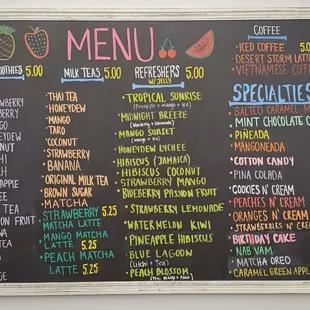 MENU
OOTHIES 5.00
MILK TEAS 5.00
THAI TEA
HONEYDEW
MANGO
TARO
COCONUT
STRAWBERRY
BANANA
ORIGINAL MILK TEA
BROWN SUGAR
MATCHA
STRAWBERRY 5.25
MATCHA LATTE
MANGO MATCHA
LATTE 5.25
PEACH MATCHA
LATTE 5.25
REFRESHERS 5.00
W/ JELLY
TROPICAL SUNRISE
(Pineapple + mango + tea)
MIDNIGHT BREEZE
MANGO SUNSET
HONEYDEW LYCHEE
HIBISCUS (JAMAICA)
HIBISCUS COCONUT
STRAWBERRY MANGO
BLUEBERRY PASSION FRUIT
STRAWBERRY LEMONADE
WATERMELON KIWI
PINEAPPLE HIBISCUS
BLUE LAGOON
(Litchi + Tea)
PEACH BLOSSOM
COFFEE
ICED COFFEE 5.0
DESERT STORM LATTE
VIETNAMESE COFFEE
SPECIALTIES
SALTED CARAMEL M
MINT CHOCOLATE C
PIÑEADA
MANGONEADA
COTTON CANDY
PINA COLADA
COOKIES N' CREAM
PEACHES N' CREAM
ORANGES N' CREAM
STRAWBERRIES N' CREAM
BIRTHDAY CAKE
NAB VAM
MATCHA OREO
CARAMEL GREEN APPLE